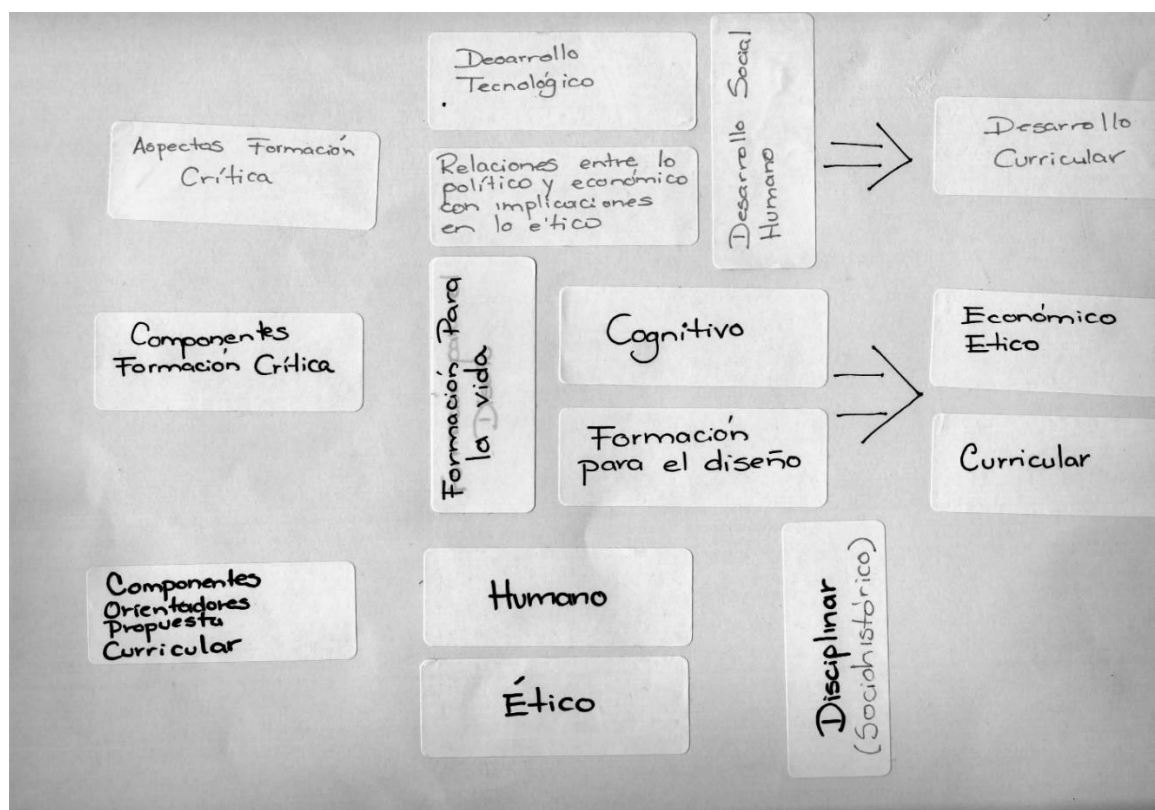 Desarrollo
Tecnológico
Aspectos Formación
Crítica
Relaciones entre lo
político y económico
con implicaciones
en lo ético
Desarrollo Social
Humano
Desarrollo
Curricular
Componentes
Formación Crítica
Formación Para
la vida
Cognitivo
Formación
para el diseño
Económico
Etico
Curricular
Componentes
Orientadores
Propuesta
Curricular
Humano
Ético
Disciplinar
(Sociohistórico)